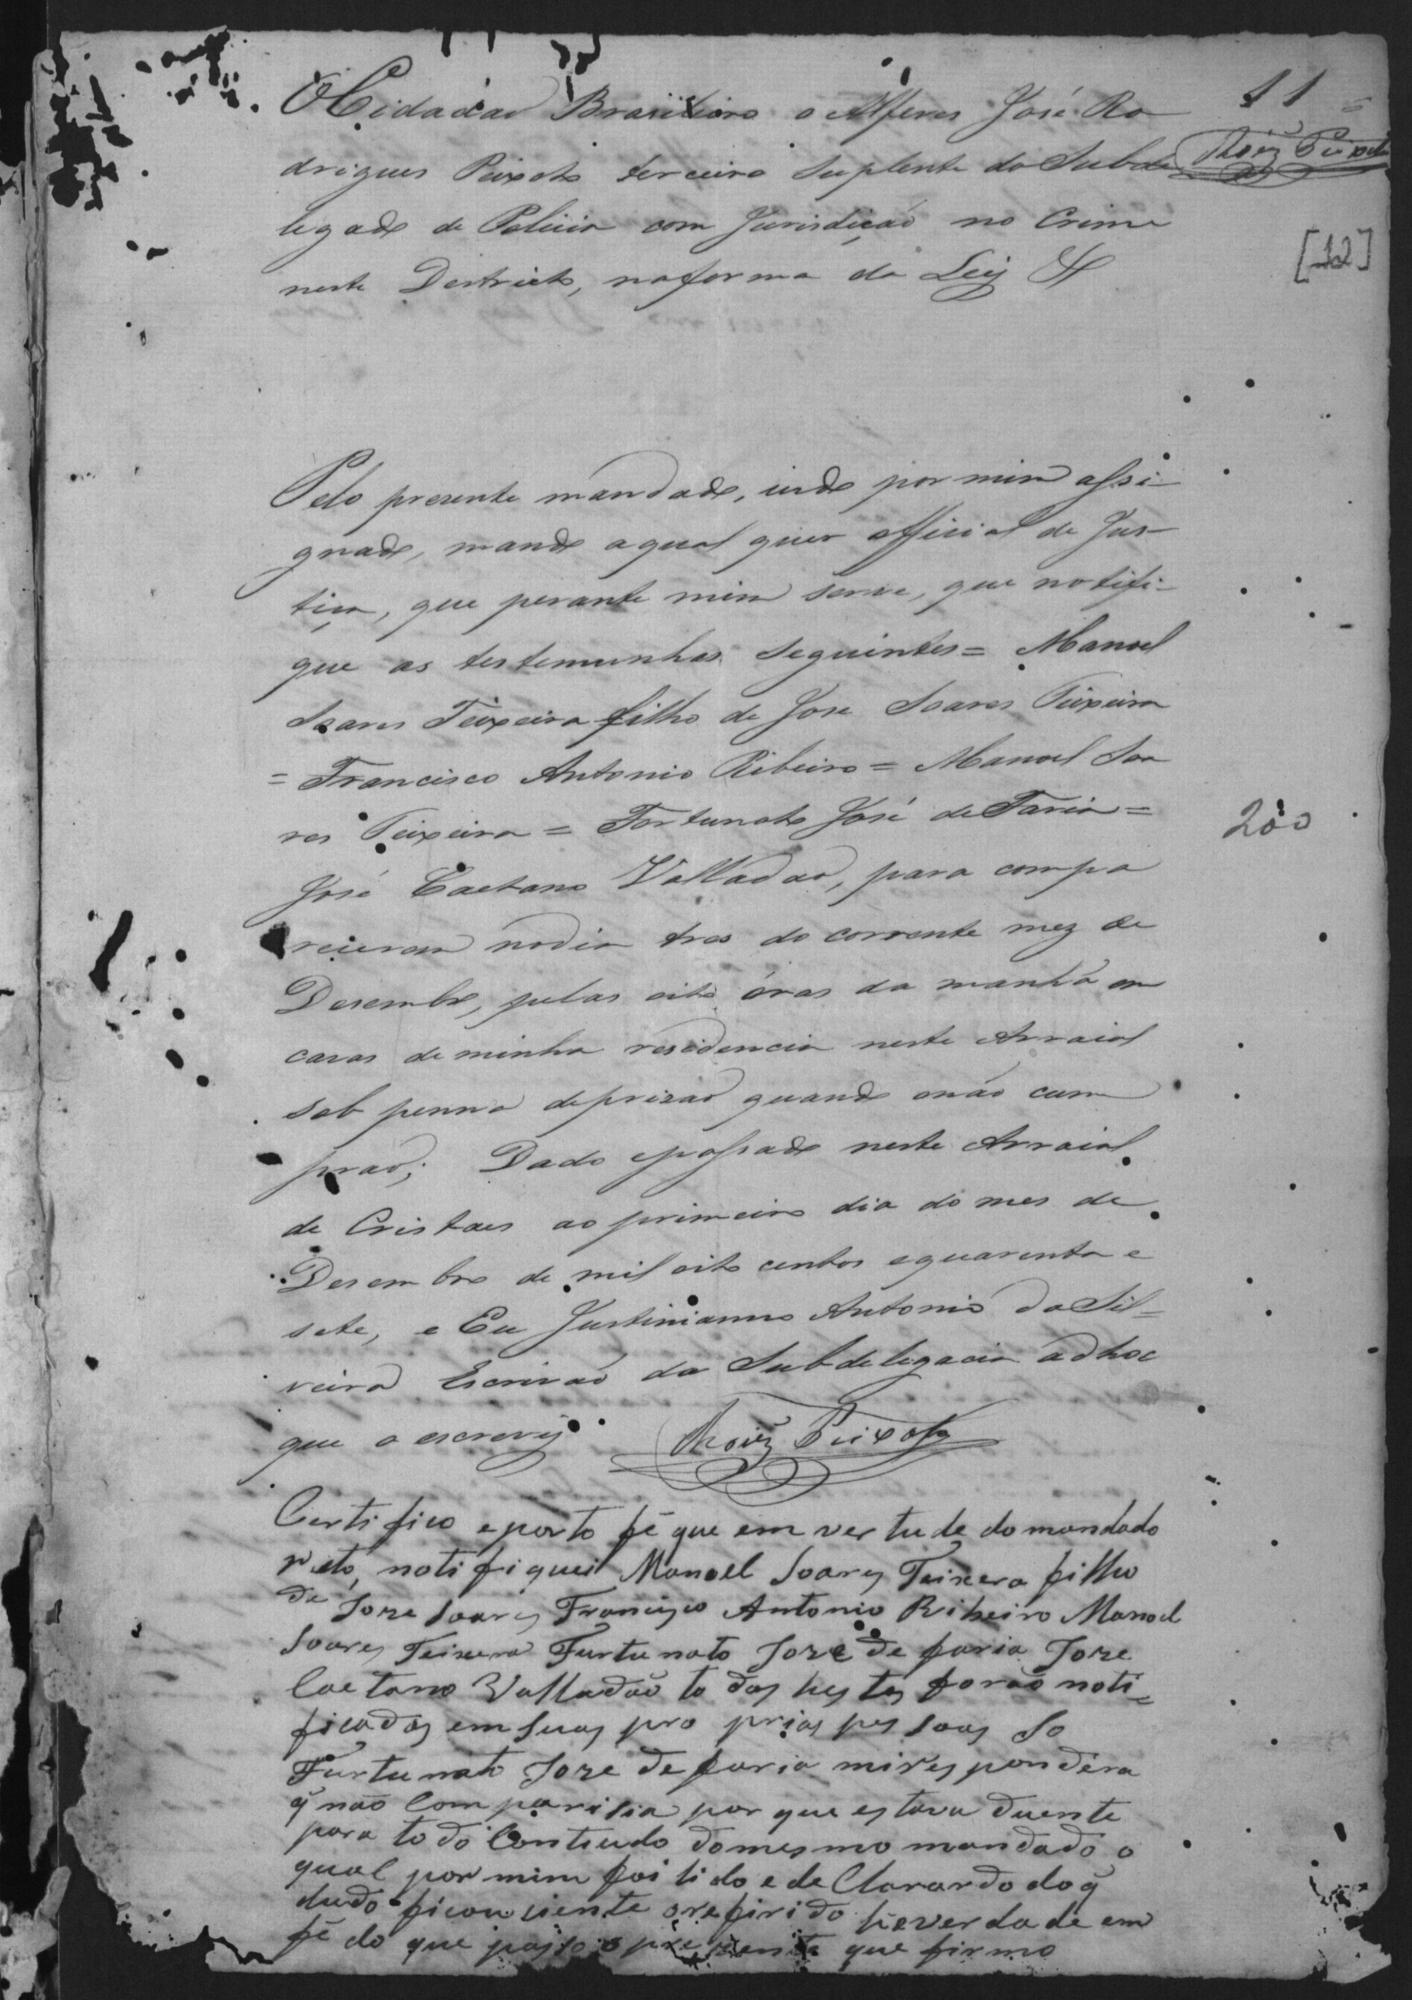 11
O Cidadão Brasileiro o Alferes José Ro
Roiz Peixoto
drigues Peixoto terceiro Suplente do Subde
legado de Policia com Jurisdição no Crime
[12]
neste Destricto, na forma da Leij &
Pelo presente mandado, indo por mim assi-
gnado, mando a qual quer official de Jus-
tiça, que perante mim serve, que notifi-
que as testemunhas seguintes = Manoel
Soares Teixeira filho de Jose Soares Teixeira
= Francisco Antonio Ribeiro = Manoel Soa
res Teixeira = Fortunato José de Faria =
200
José Caetano Valladão, para compa
recerem no dia tres do corrente mez de
Desembro, pelas oito óras da manhã em
casas de minha residencia neste Arraial
sob penna de prizão quando o não cum
prão; Dado e passado neste Arraial
de Cristaes ao primeiro dia do mes de
Desembro de mil oito centos e quarenta e
sete, e Eu Justinianno Antonio da Sil=
veira Escrivão da Subdelegacia ad hoc
que o escrevij
Roiz Peixoto
Certifico e porto fé que em vertude do mandado
retó, notifiquei Manoel Soares Teixera filho
de Joze Soares Francisco Antonio Ribeiro Manoel
Soares Teixera Furtunato Joze de faria Joze
Caetano Valladão todas hestas forão noti=
ficadas em suas pro prias pessoas So
Furtunato Joze de faria mires pondéra
q̃ não Comparisia por que estava duente
para todo Contiudo do mesmo mandado o
qual por mim foi lido e de Clarardo do q̃
dudo ficou siente o refirido hé verdade em
fé do que passo o prezente que firmo